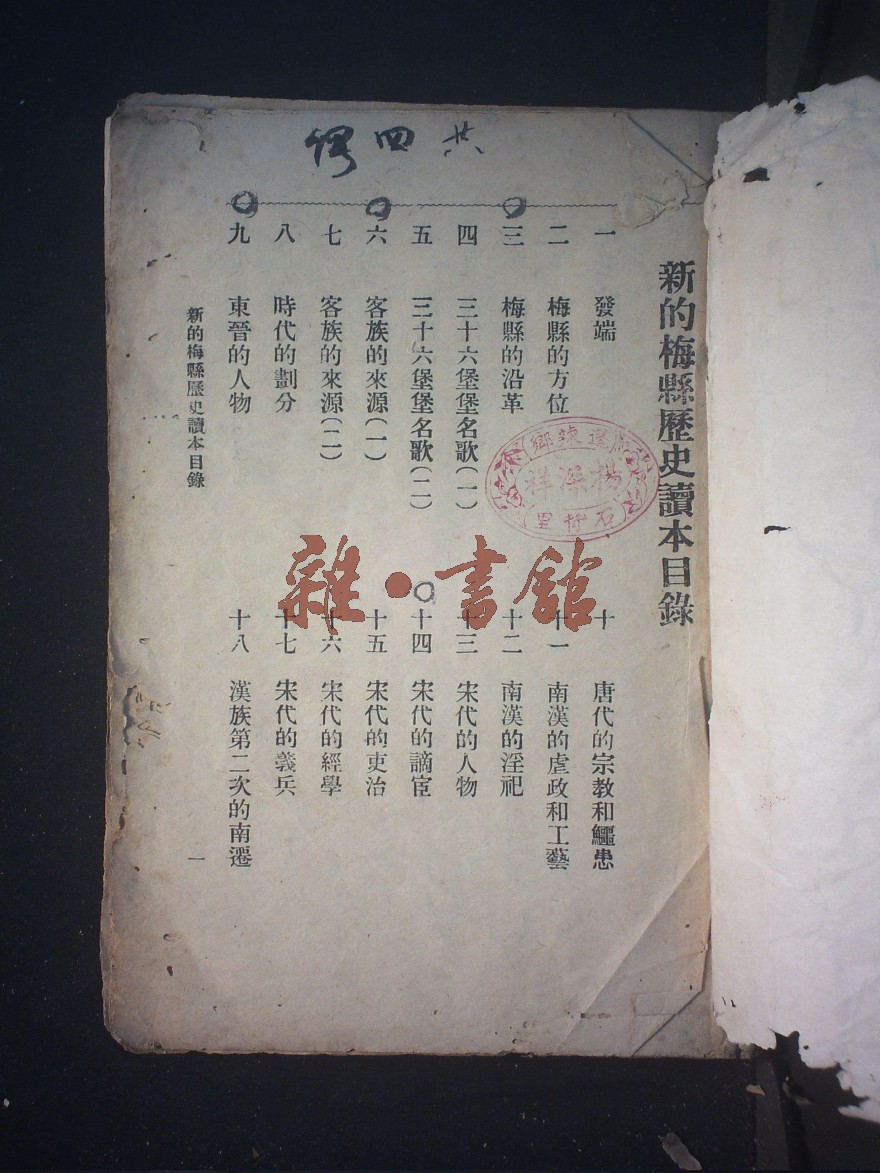 共四
新的梅縣歷史讀本目錄
一 發端
二 梅縣的方位
三 梅縣的沿革
四 三十六堡堡名歌(一)
五 三十六堡堡名歌(二)
六 客族的來源(一)
七 客族的來源(二)
八 時代的劃分
九 東晉的人物
十 唐代的宗教和鱷患
十一 南漢的虐政和工藝
十二 南漢的淫祀
十三 宋代的人物
十四 宋代的謫宦
十五 宋代的吏治
十六 宋代的經學
十七 宋代的義兵
十八 漢族第二次的南遷
新的梅縣歷史讀本目錄
一
鄉
楊深祥
石 里
雜·書舘